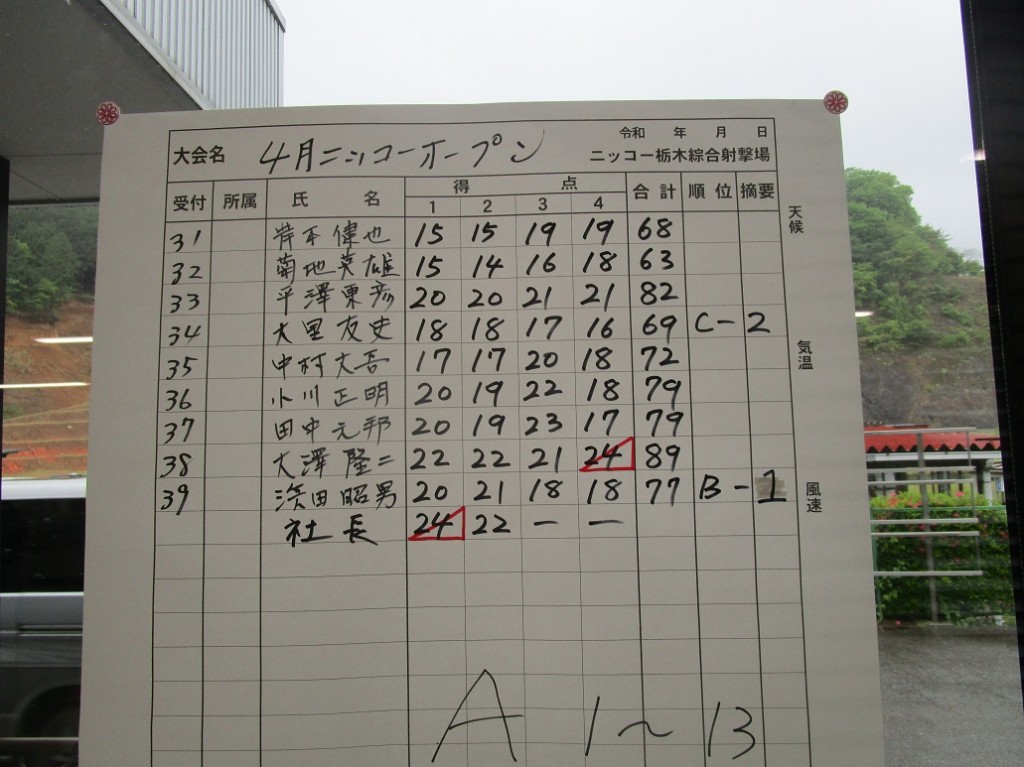 令和 年 月 日
大会名 4月ニッコーオープン ニッコー栃木綜合射撃場
受付 所属 氏 名 得 点 合計 順位 摘要
1 2 3 4
天候
31 岸本偉也 15 15 19 19 68
32 菊地英雄 15 14 16 18 63
33 平澤東彦 20 20 21 21 82
34 大里友史 18 18 17 16 69 C-2
気温
35 中村大吾 17 17 20 18 72
36 小川正明 20 19 22 18 79
37 田中元邦 20 19 23 17 79
38 大澤隆二 22 22 21 24 89
39 濱田昭男 20 21 18 18 77 B-1
風速
社長 24 22 ー ー
A 1~13